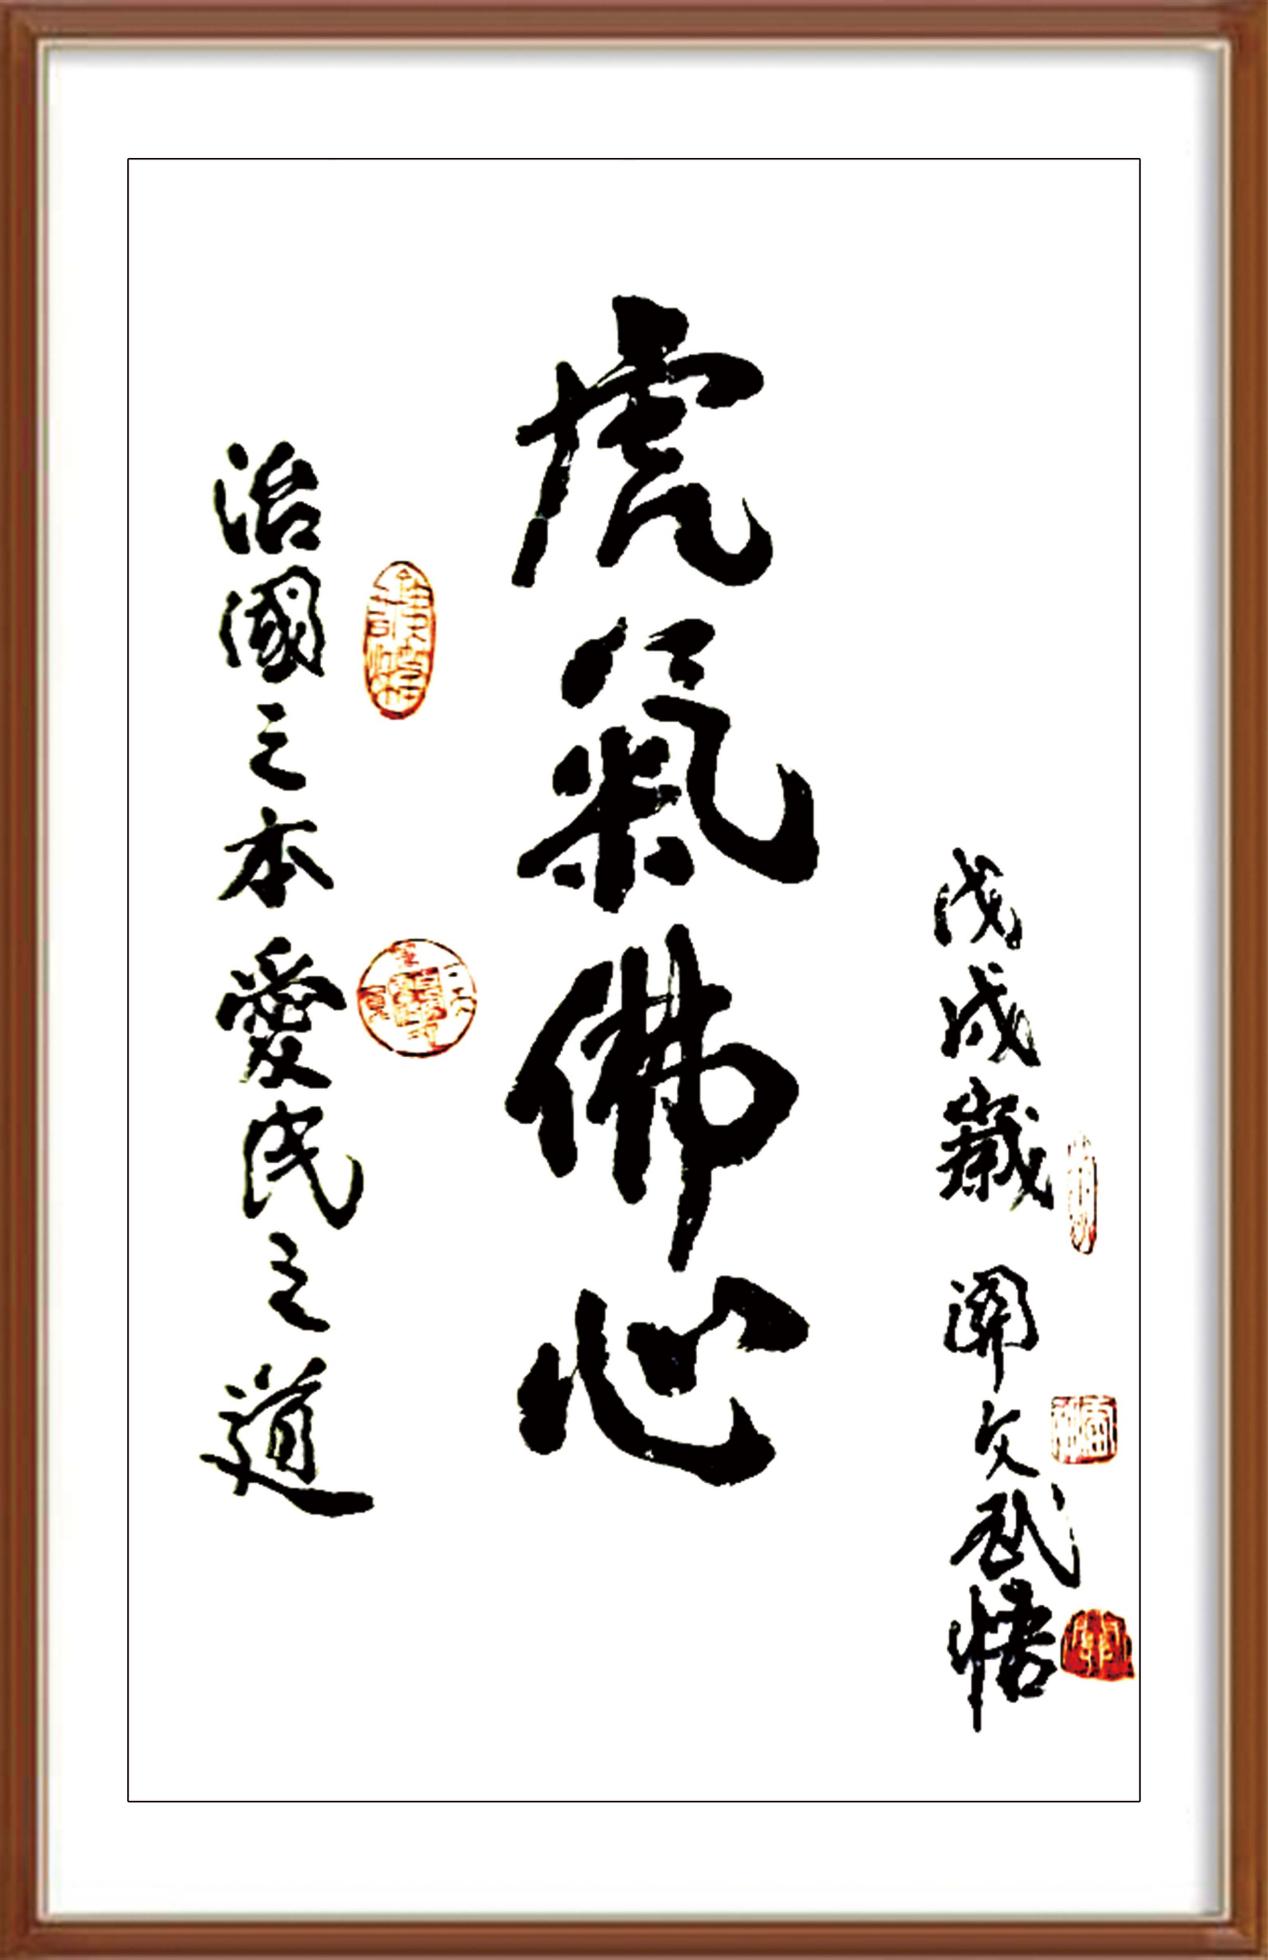 戊戌歲 關文武悟
虎氣佛心
治國之本愛民之道